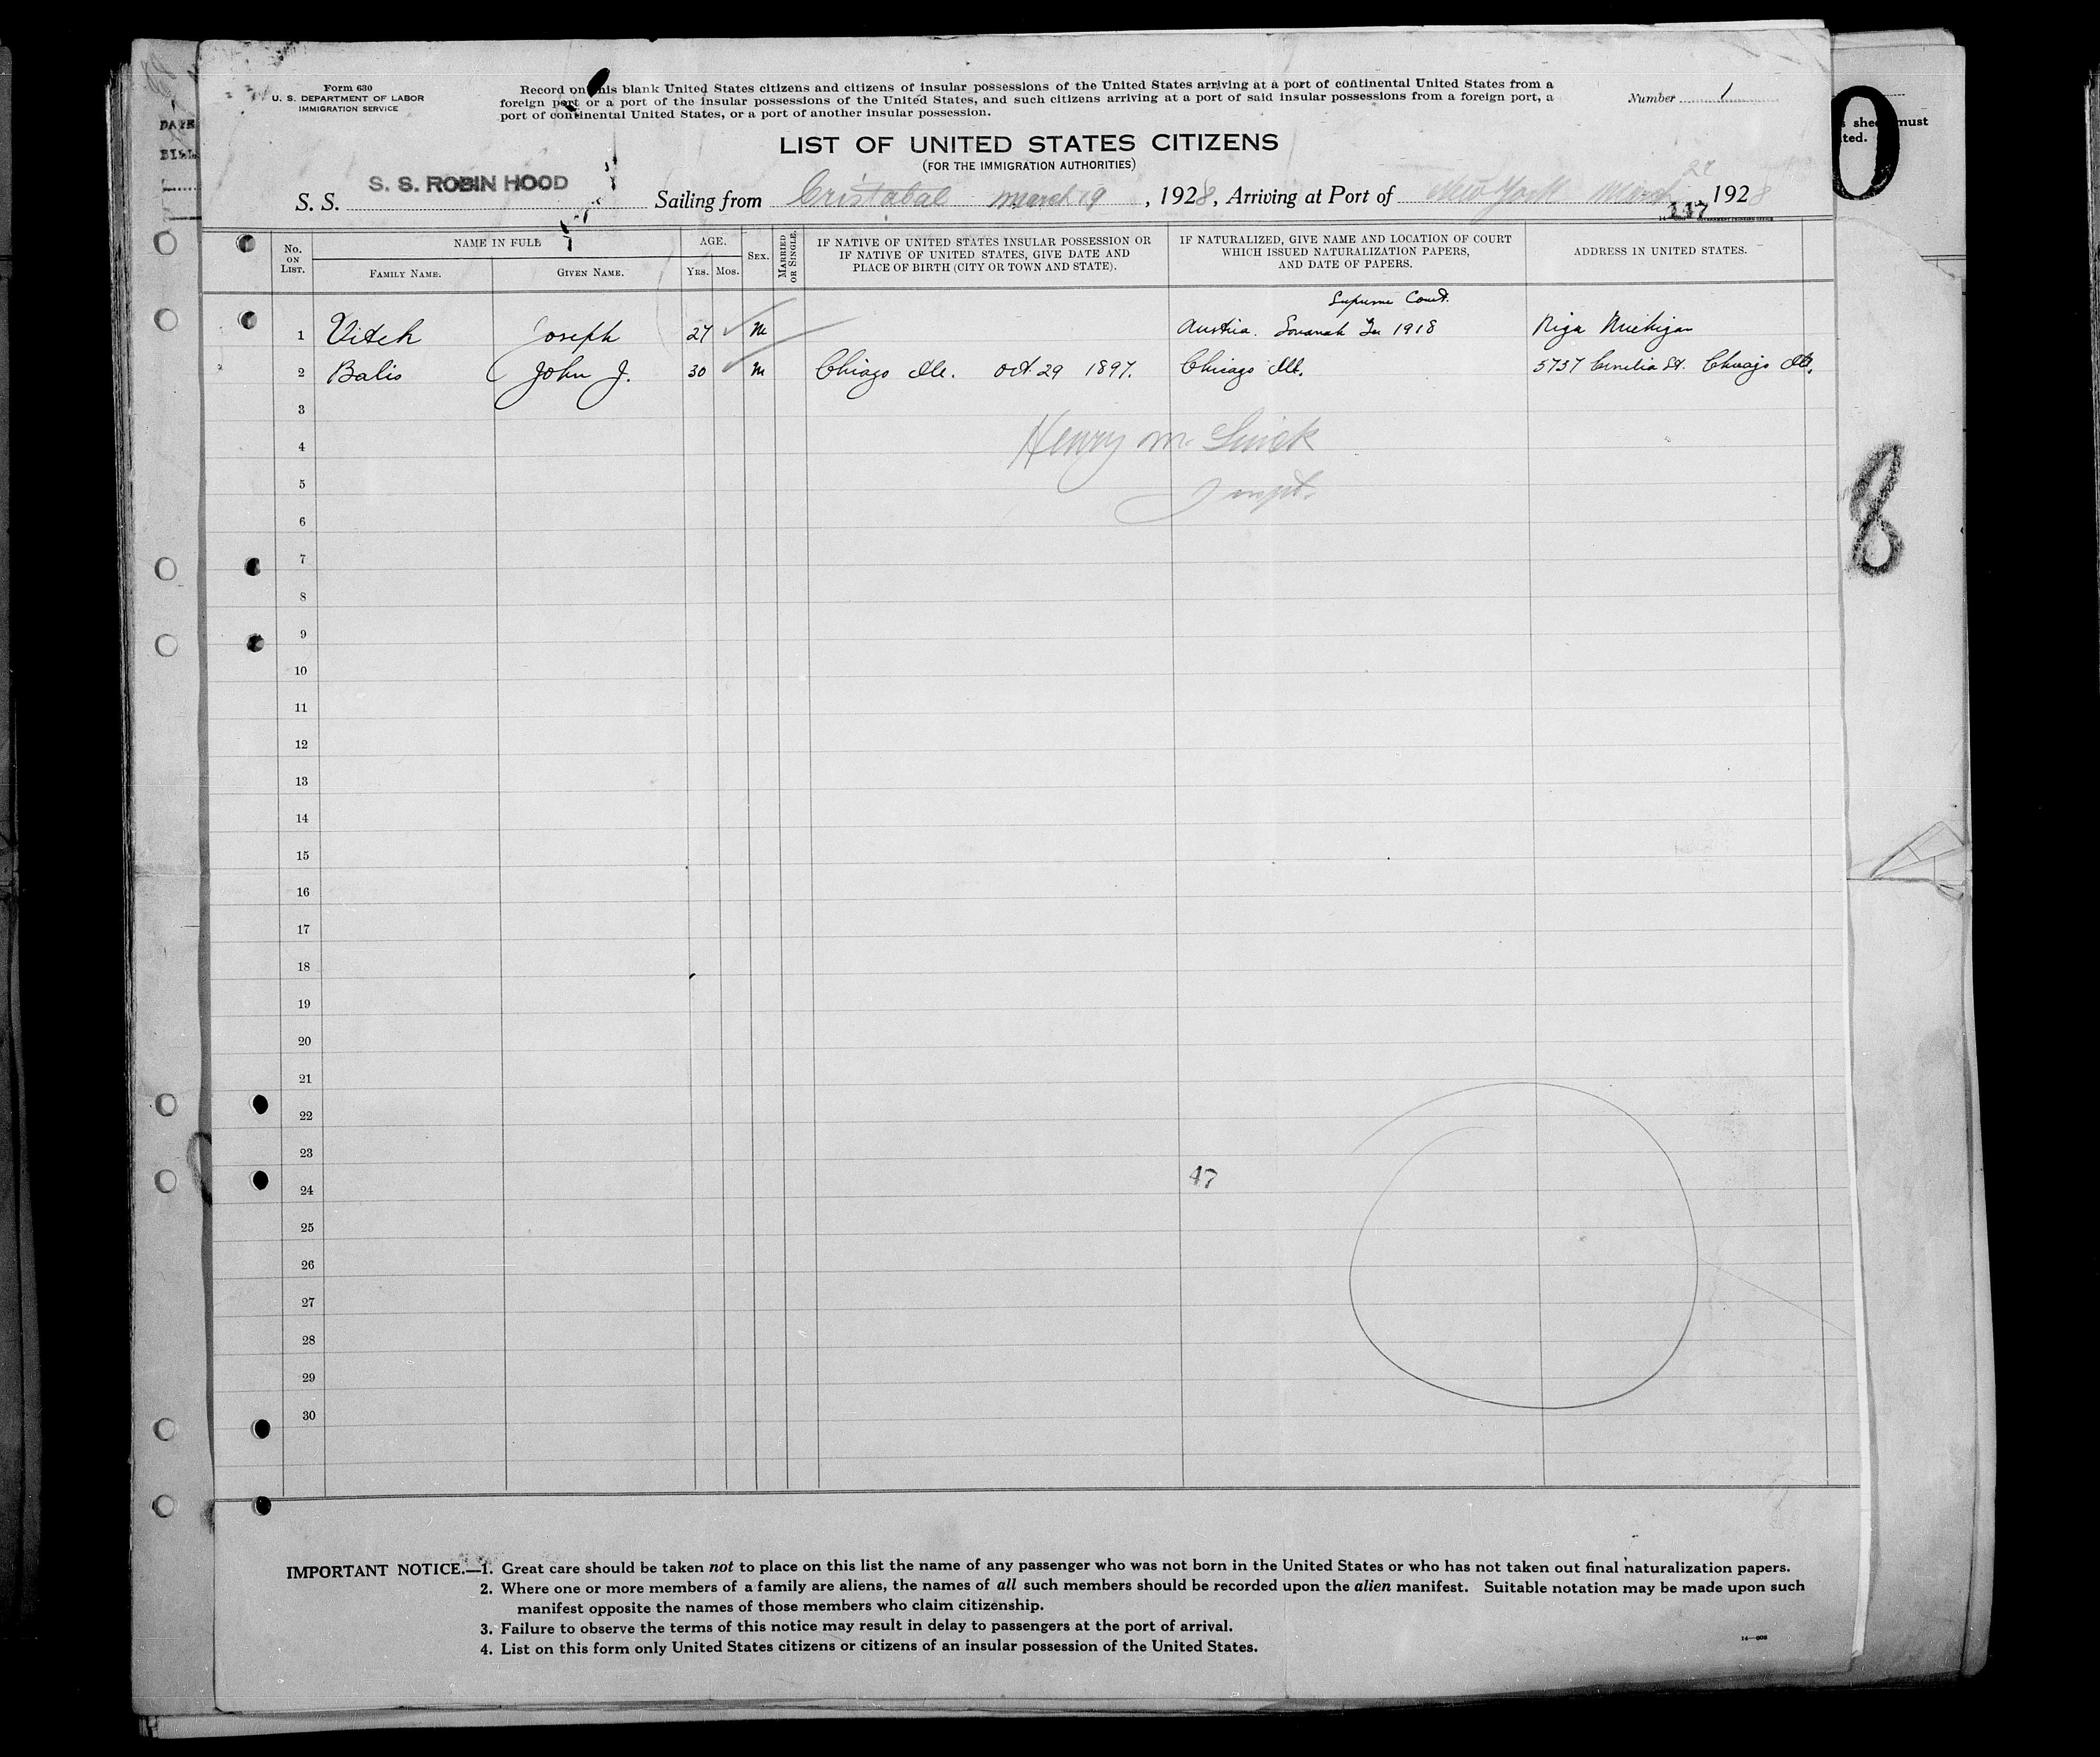 Form 630
U. S. DEPARTMENT OF LABOR
IMMIGRATION SERVICE
Record on this blank United States citizens and citizens of insular possessions of the United States arriving at a port of continental United States from a
foreign port or a port of the insular possessions of the United States, and such citizens arriving at a port of said insular possessions from a foreign port, a
port of continental United States, or a port of another insular possession.
Number 1
LIST OF UNITED STATES CITIZENS
(FOR THE IMMIGRATION AUTHORITIES)
S. S. S. S. ROBIN HOOD Sailing from Cristabal march 19, 1928, Arriving at Port of New York March 1928
147
No. ON LIST. NAME IN FULL FAMILY NAME. GIVEN NAME. AGE. YRS. MOS. SEX. MARRIED OR SINGLE. IF NATIVE OF UNITED STATES INSULAR POSSESSION OR IF NATIVE OF UNITED STATES, GIVE DATE AND PLACE OF BIRTH (CITY OR TOWN AND STATE). IF NATURALIZED, GIVE NAME AND LOCATION OF COURT WHICH ISSUED NATURALIZATION PAPERS, AND DATE OF PAPERS. ADDRESS IN UNITED STATES.
Supreme Court.
1 Vitek Joseph 27 M Austria. Savanah Ga 1918 Riga Michigan
2 Balis John J. 30 M Chicago Ill. Oct 29 1897. Chicago Ill. 5737 St. Chicago Ill.
3
4 Henry M.
5 Inspt.
6
7
8
9
10
11
12
13
14
15
16
17
18
19
20
21
22
23
24 47
25
26
27
28
29
30
IMPORTANT NOTICE.—1. Great care should be taken not to place on this list the name of any passenger who was not born in the United States or who has not taken out final naturalization papers.
2. Where one or more members of a family are aliens, the names of all such members should be recorded upon the alien manifest. Suitable notation may be made upon such
manifest opposite the names of those members who claim citizenship.
3. Failure to observe the terms of this notice may result in delay to passengers at the port of arrival.
4. List on this form only United States citizens or citizens of an insular possession of the United States.
14—608
DATE
must
ted.
0
8